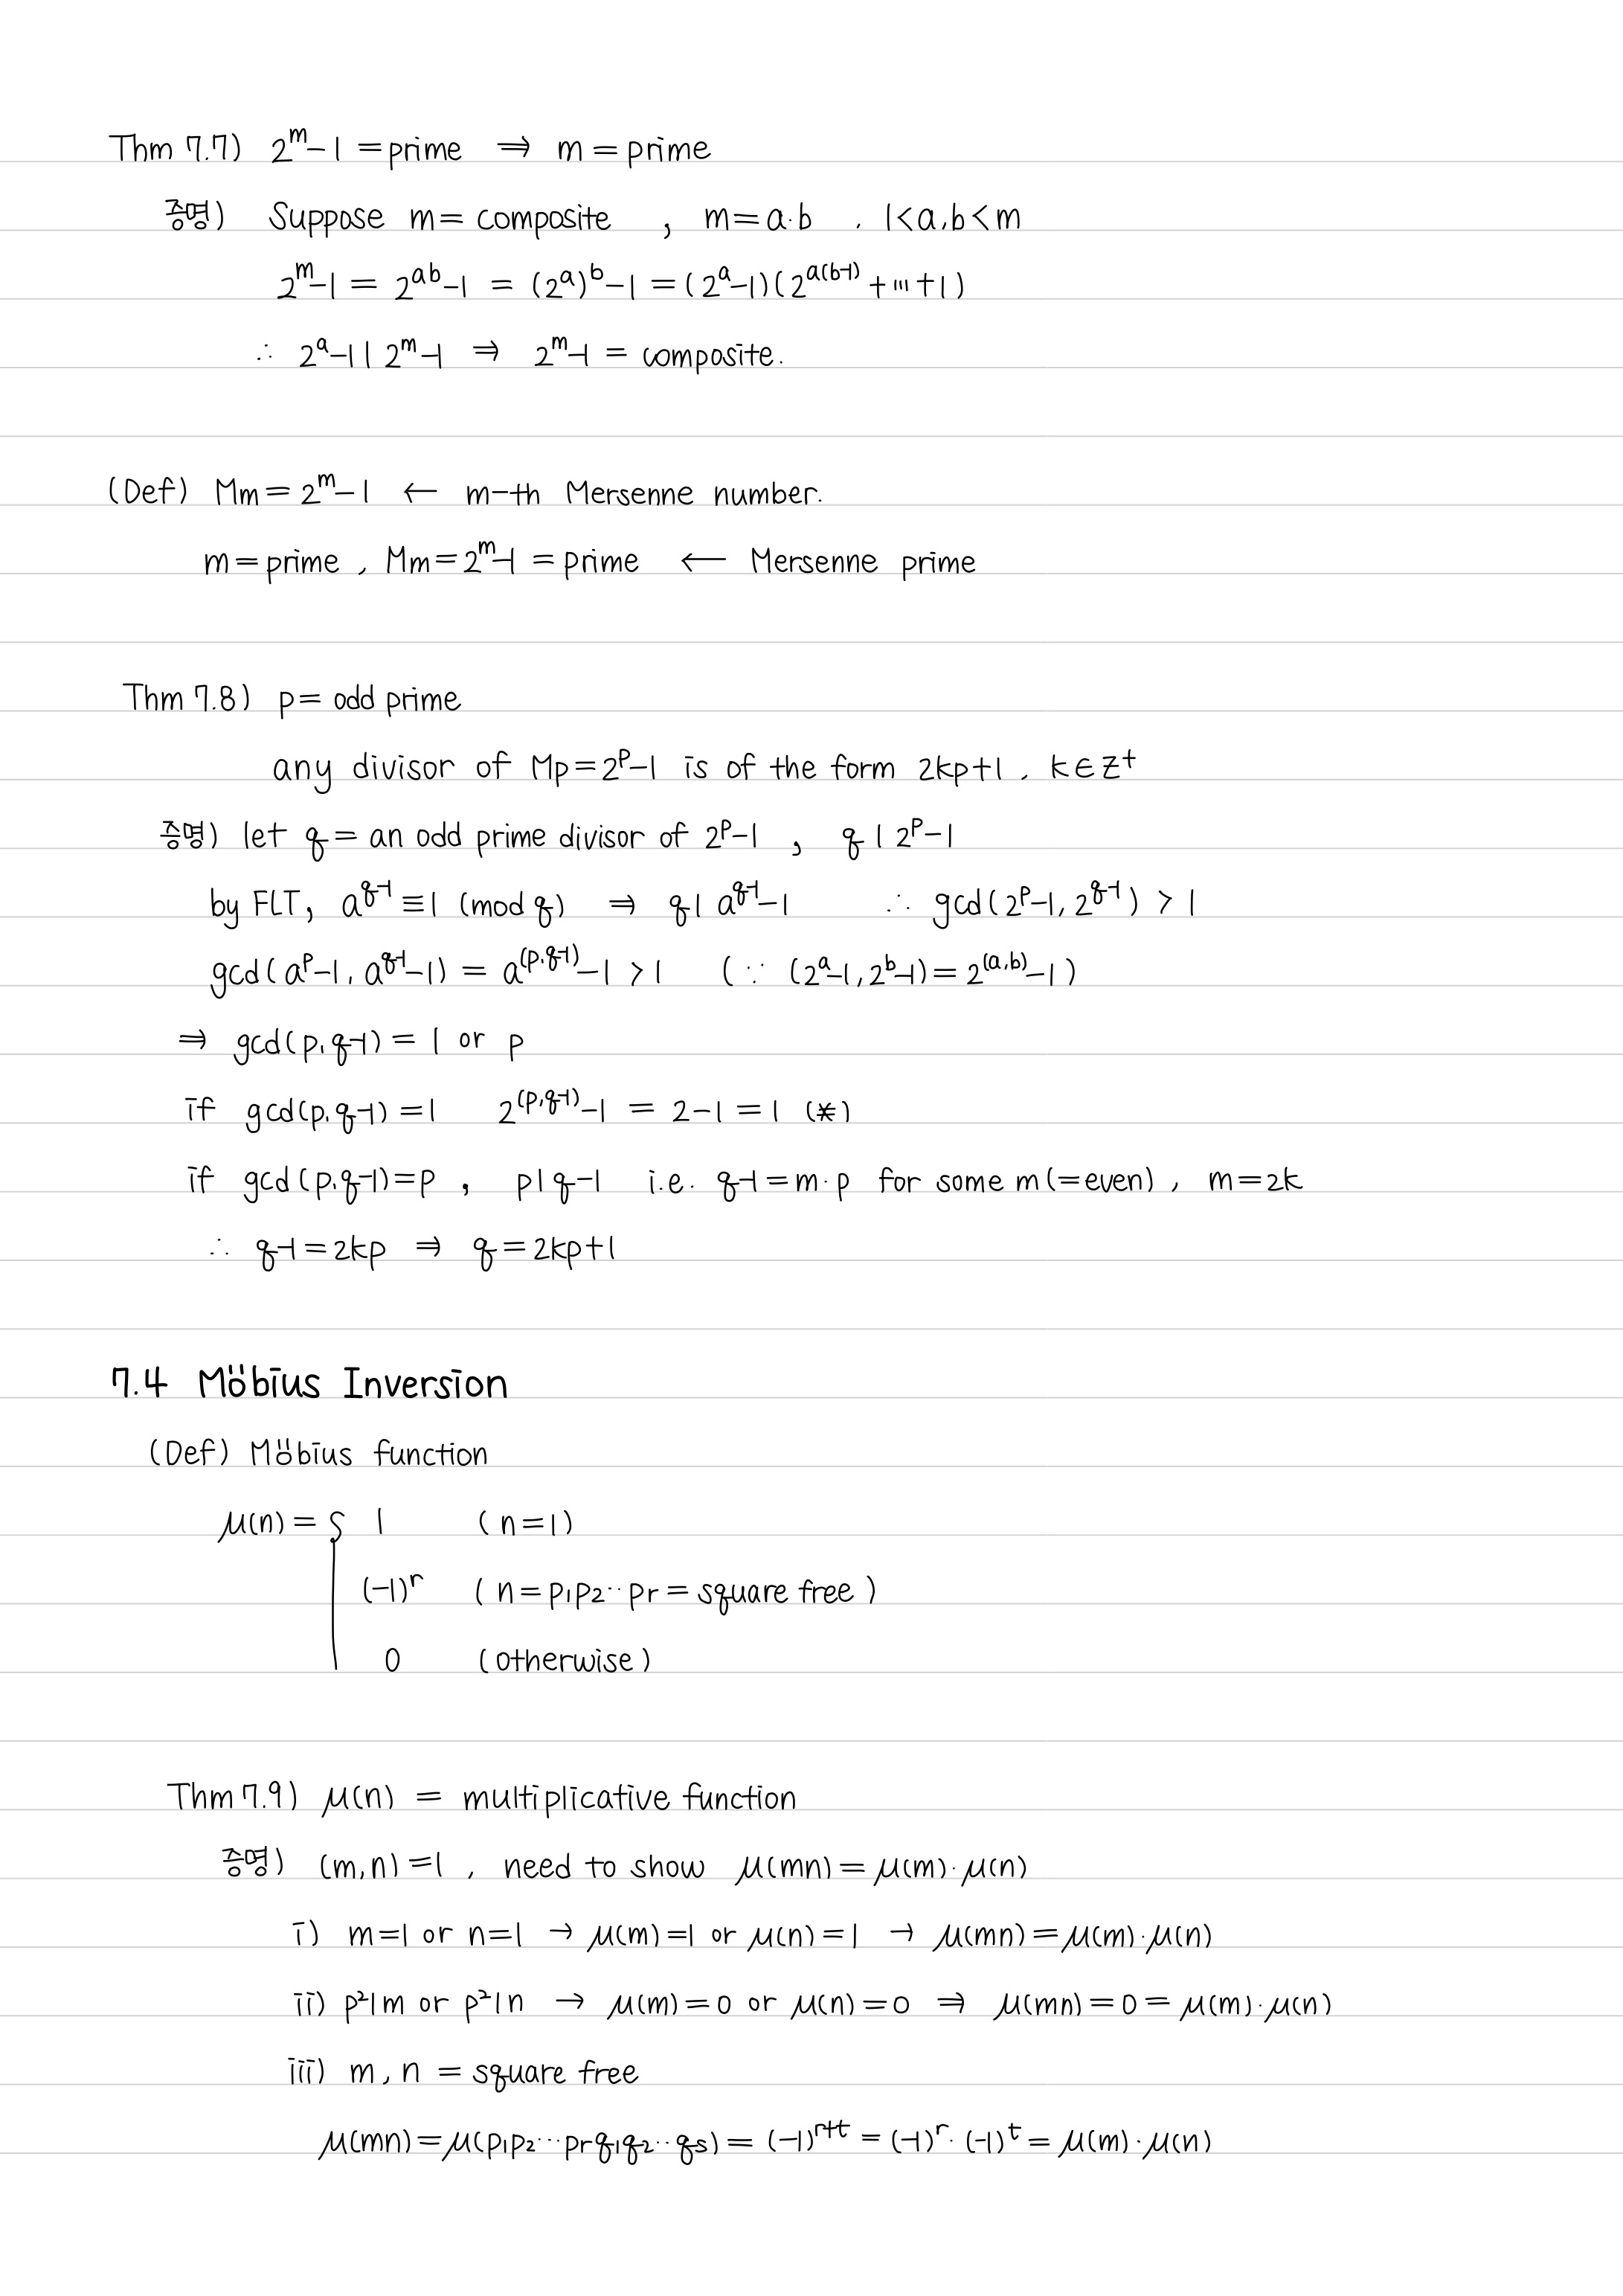 Thm 7.7) 2^m-1 = prime ⇒ m = prime
증명) Suppose m = composite , m = a·b , 1<a,b<m
2^m-1 = 2^ab-1 = (2^a)^b-1 = (2^a-1)(2^a(b-1)+…+1)
∴ 2^a-1 | 2^m-1 ⇒ 2^m-1 = composite.
(Def) Mm = 2^m-1 ← m-th Mersenne number.
m = prime , Mm = 2^m-1 = prime ← Mersenne prime
Thm 7.8) p = odd prime
any divisor of Mp = 2^p-1 is of the form 2kp+1 , k∈Z^+
증명) let q = an odd prime divisor of 2^p-1 , q | 2^p-1
by FLT, a^q-1 ≡ 1 (mod q) ⇒ q | a^q-1 -1 ∴ gcd(2^p-1, 2^q-1) > 1
gcd(a^p-1, a^q-1 -1) = a^(p,q-1) -1 > 1 (∵ (2^a-1, 2^b-1) = 2^(a,b) -1)
⇒ gcd(p,q-1) = 1 or p
if gcd(p,q-1) = 1 2^(p,q-1) -1 = 2-1 = 1 (※)
if gcd(p,q-1) = p , p | q-1 i.e. q-1 = m·p for some m(=even) , m=2k
∴ q-1 = 2kp ⇒ q = 2kp+1
7.4 Möbius Inversion
(Def) Möbius function
μ(n) = { 1 (n=1)
(-1)^r (n = p₁p₂··pr = square free)
0 (otherwise)
Thm 7.9) μ(n) = multiplicative function
증명) (m,n) = 1 , need to show μ(mn) = μ(m)·μ(n)
i) m=1 or n=1 → μ(m)=1 or μ(n)=1 → μ(mn) = μ(m)·μ(n)
ii) p²|m or p²|n → μ(m)=0 or μ(n)=0 ⇒ μ(mn) = 0 = μ(m)·μ(n)
iii) m,n = square free
μ(mn) = μ(p₁p₂···prq₁q₂··qs) = (-1)^r+t = (-1)^r·(-1)^t = μ(m)·μ(n)